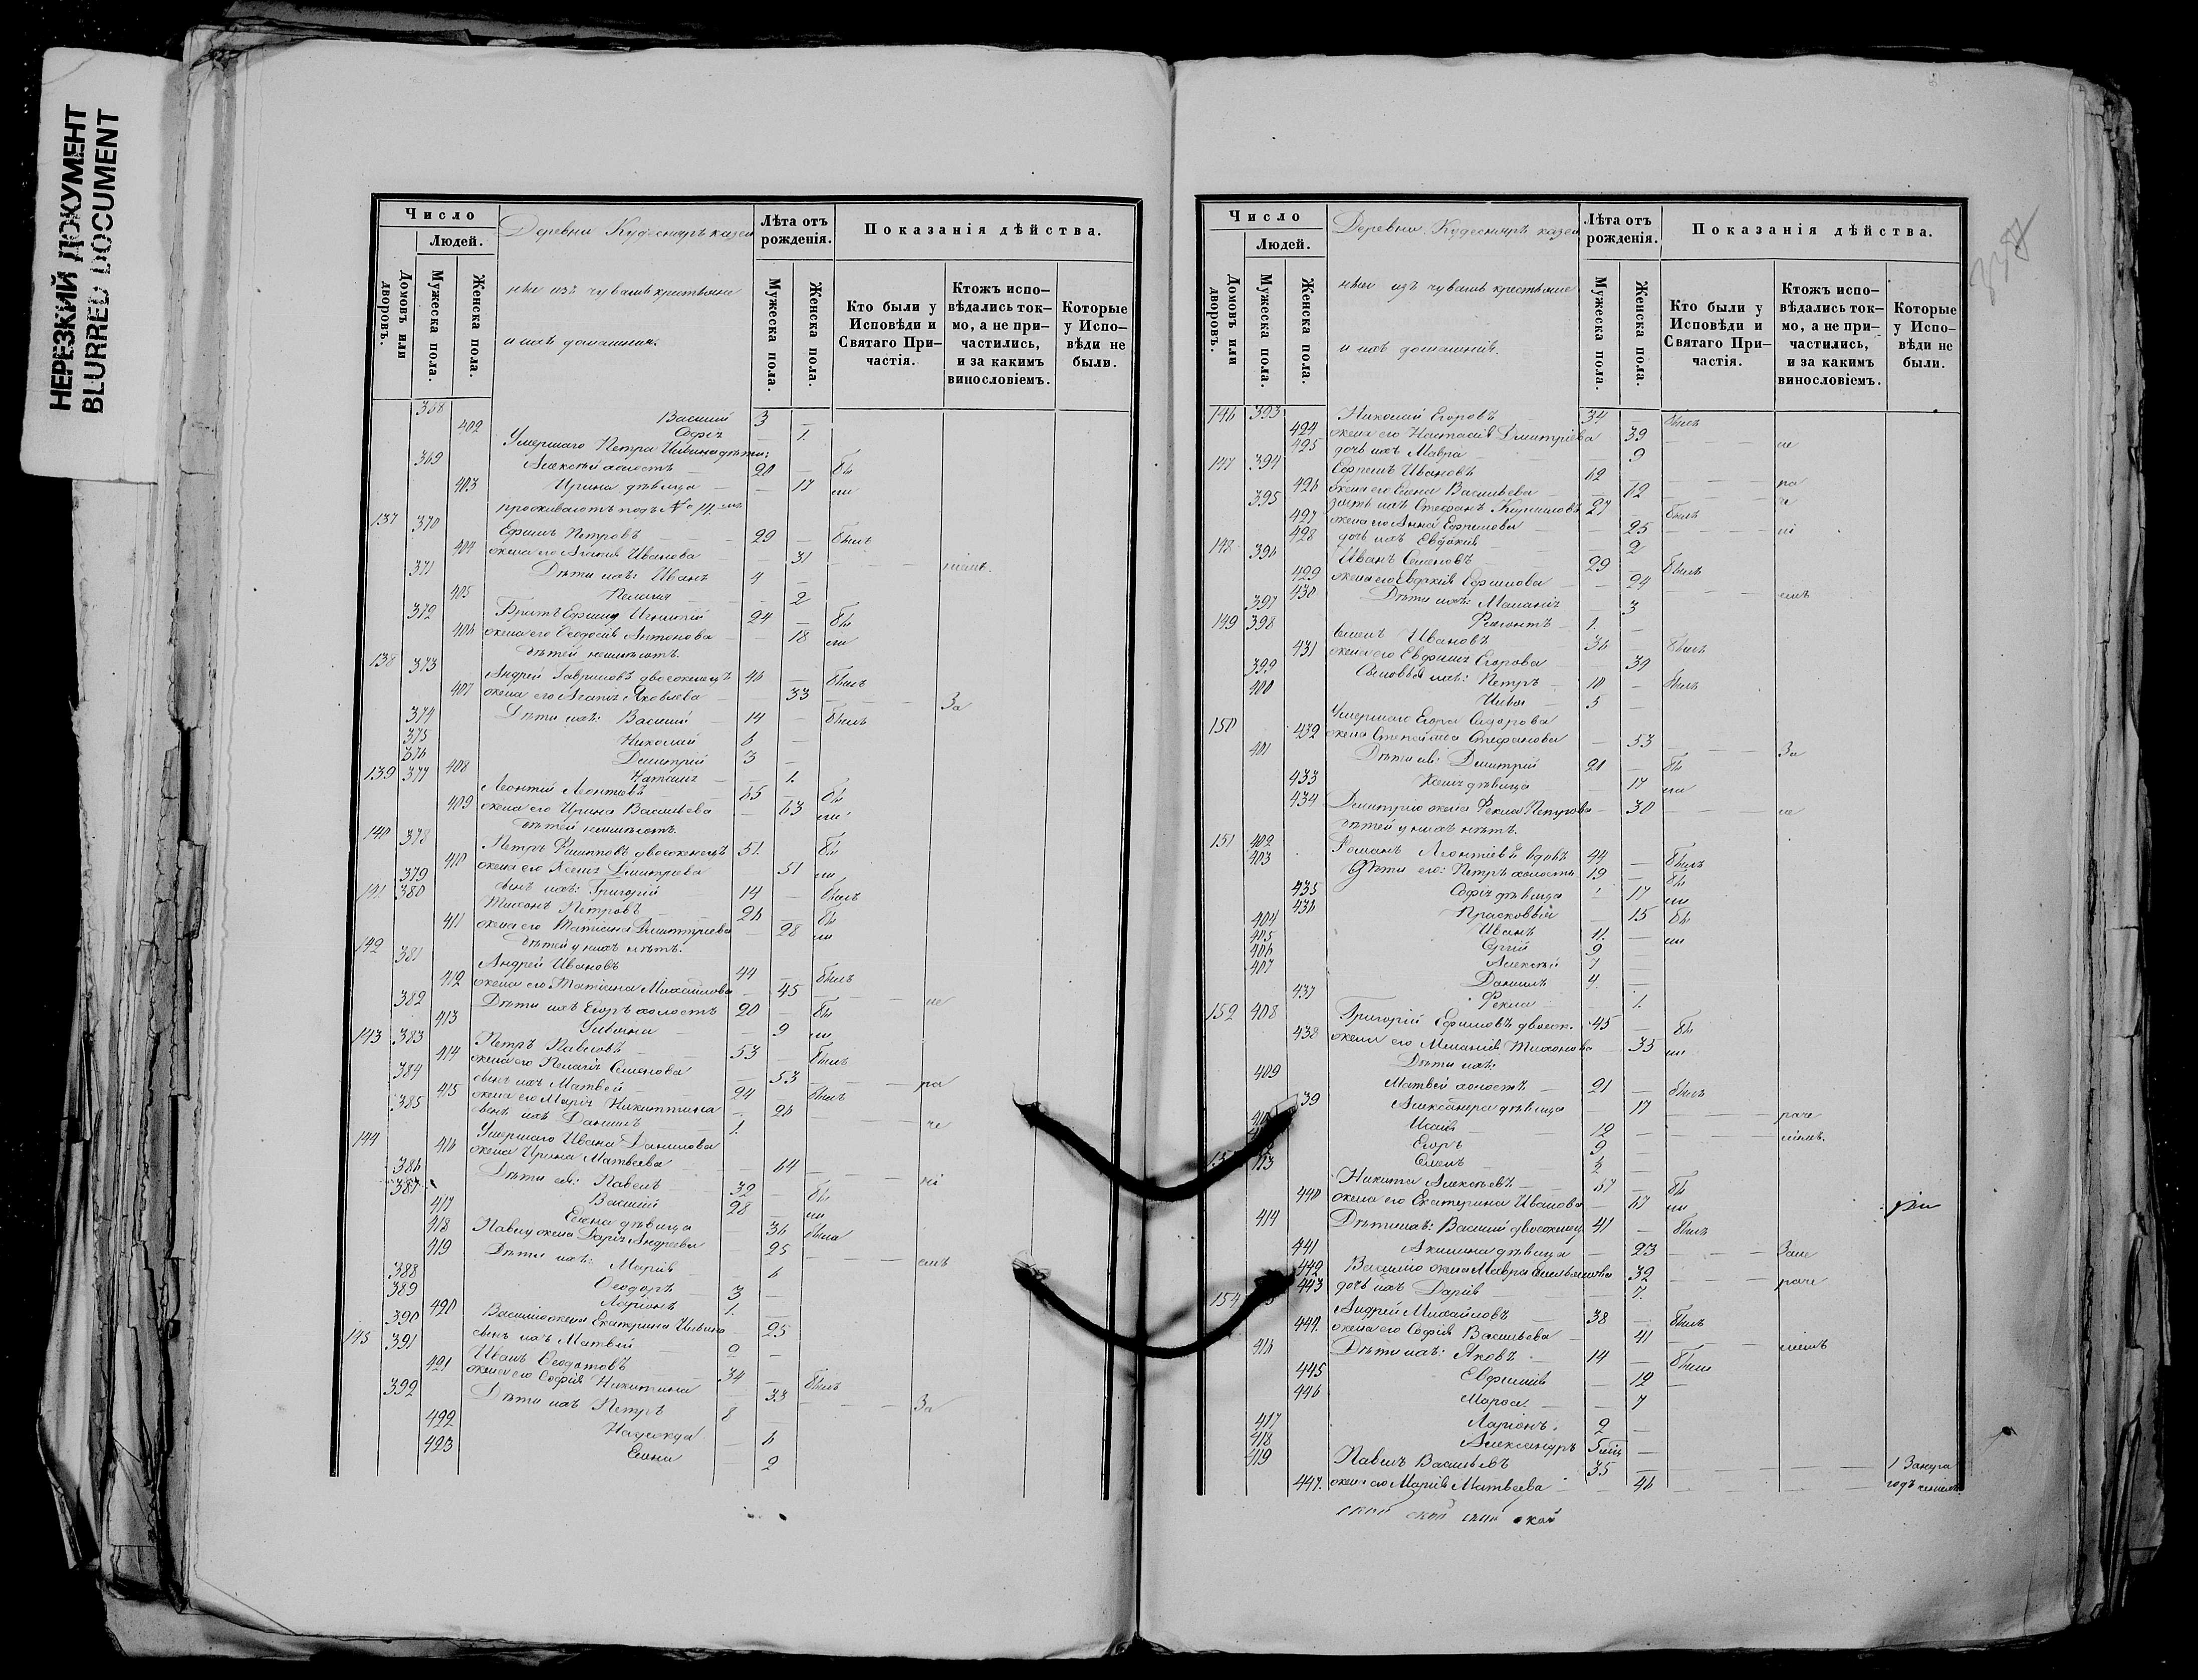 НЕРЕЗКИЙ ДОКУМЕНТ
BLURRED DOCUMENT
Число
Людей.
Домовъ или дворовъ.
Мужеска пола.
Женска пола.
Деревни Кудеснеръ казен
ные изъ чувашъ крестьяне
и ихъ домашніи.
Лѣта отъ рожденія.
Мужеска пола.
Женска пола.
Показанія дѣйства.
Кто были у Исповѣди и Святаго Причастія.
Ктожъ исповѣдались токмо, а не причастились, и за какимъ винословіемъ.
Которые у Исповѣди не были.
368 Василій 3 —
402 Софія — 1.
Умершаго Петра Ильина дѣти:
369 Алексѣй холостъ 20 — бы
403 Ирина дѣвица — 17 ли
проживаютъ подъ № 14.
137 370 Ефимъ Петровъ 29 — былъ
404 жена его Агафія Иванова — 31
371 Дѣти ихъ: Иванъ 4 —
405 Пелагія — 2
372 Братъ Ефиму Игнатій 24 — бы
406 жена его Ѳеодосія Антонова — 18 ли
дѣтей неимѣютъ.
138 373 Андрей Гавриловъ двоеженецъ 46 — былъ
407 жена его Агапія Яковлева — 33 За
374 Дѣти ихъ: Василій 14 — былъ
375 Николай 6 —
376 Димитрій 3 —
408 Наталія — 1.
139 377 Леонтій Леонтьевъ 65 — бы
409 жена его Ирина Васильева — 63 ли
дѣтей неимѣютъ.
140 378 Петръ Филипповъ двоеженецъ 51. бы
410 жена его Ксенія Димитріева 51 ли
379 сынъ ихъ: Григорій 14 — былъ
141 380 Тихонъ Петровъ 26 — бы
411 жена его Татіана Димитріева — 28 ли
дѣтей у нихъ нѣтъ.
142 381 Андрей Ивановъ 44 былъ
412 жена его Татіана Михайлова — 45 не
382 Дѣти ихъ Егоръ холостъ 20 — бы
413 Уліяна — 9 ли
143 383 Петръ Павловъ 53 — былъ
414 жена его Пелагія Семенова — 53 ра
384 сынъ ихъ Матвей 24 — былъ
415 жена его Марія Никитина — 26 че
385 сынъ ихъ Даніилъ 1.
144 Умершаго Ивана Данилова
416 жена Ирина Матвеева — 64 ні
386 Дѣти ея: Павелъ 32 — бы
387 Василій 28 — ли
417 Елена дѣвица 36 была
418 Павлу жена Дарія Андреева 25 емъ
419 Дѣти ихъ: Марія — 6
388 Ѳеодоръ 3 —
389 Ларіонъ 1. —
420 Василію жена Екатерина Ильина 25
390 сынъ ихъ Матвѣй 2 —
145 391 Иванъ Ѳедотовъ 34 былъ
421 жена его Софія Никитина 33 За
392 Дѣти ихъ Петръ 8
422 Надежда — 6
423 Елена 2
Число
Людей.
Домовъ или дворовъ.
Мужеска пола.
Женска пола.
Деревни Кудеснеръ казен
ные изъ чувашъ крестьяне
и ихъ домашніи.
Лѣта отъ рожденія.
Мужеска пола.
Женска пола.
Показанія дѣйства.
Кто были у Исповѣди и Святаго Причастія.
Ктожъ исповѣдались токмо, а не причастились, и за какимъ винословіемъ.
Которые у Исповѣди не были.
146 393 Николай Егоровъ 34 — былъ
424 жена его Настасія Димитріева 39 не
425 дочь ихъ Мавра — 9
147 394 Ефремъ Ивановъ 62 ра
426 жена его Елена Васильева — 62 че
395 зять ихъ Стефанъ Кириловъ 27 — былъ
427 жена его Анна Ефремова 25 ні
428 дочь ихъ Евдокія — 2
148 396 Иванъ Семеновъ 29 — былъ
429 жена его Евдокія Ефимова — 24 емъ
430 Дѣти ихъ: Маланія — 3
397 Филиппъ 1. —
149 398 Семенъ Ивановъ 36 — былъ
431 жена его Евфимія Егорова — 34
399 Сыновья ихъ: Петръ 10 — былъ
400 Илья 5 —
150 Умершаго Егора Сидорова
432 жена Степанида Стефанова — 53 За
401 Дѣти ея: Димитрій 21 — бы
433 Ксенія дѣвица 17 ли
434 Димитрію жена Фекла Петрова — 30 не
дѣтей у нихъ нѣтъ.
151 402 Романъ Леонтіевъ вдовъ 44 — былъ
403 Дѣти его: Петръ холостъ 19 — бы
435 Софія дѣвица 17 ли
436 Прасковья — 15 бы
404 Иванъ 11. — ли
405 Сергій 9 —
406 Алексѣй 7 —
407 Даніилъ 4. —
437 Фекла 1.
152 408 Григорій Ефимовъ двоеж. 45 — бы
438 жена его Меланія Тихонова 35 ли
Дѣти ихъ:
409 Матвей холостъ 21 — былъ
39 Александра дѣвица — 17 раче
Исаія 12 — ніемъ.
Егоръ 9 —
Семенъ 2 —
Никита Алексѣевъ 67 — бы
440 жена его Екатерина Иванова — 67 ли
414 Дѣти ихъ: Василій двоеженец 41 — былъ
441 Акилина дѣвица — 23 Заче
442 Василію жена Мавра Емельянова 32 раче
443 дочь ихъ Дарія 7.
154 Андрей Михайловъ 38 — былъ
444. жена его Софія Васильева — 41 ніемъ
416 Дѣти ихъ: Яковъ 14 — были
445 Евфимія — 12
446 Марѳа — 7
417 Ларіонъ 2 —
418 Александръ 5 мѣц —
419 Павелъ Васильевъ 35
447. жена его Марія Матвеева — 46